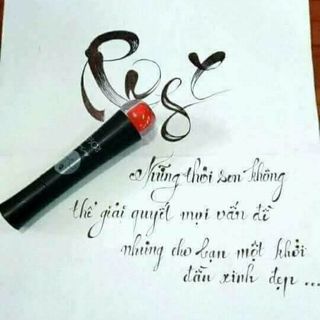 Những thỏi son không
thể giải quyết mọi vấn đề
nhưng cho bạn một khởi
đầu xinh đẹp ...